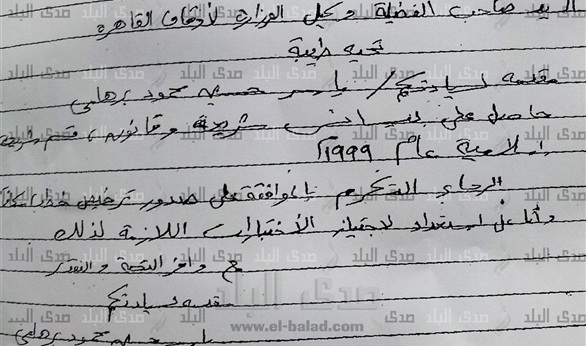 السيد صاحب الفضيلة وكيل الوزارة لأوقاف القاهرة
تحية طيبة
مقدمه لسيادتكم / ياسر حسين محمود برهامي
حاصل على ليسانس شريعة وقانون، قسم شريعة
إسلامية عام 1999
الرجاء التكرم بالموافقة على صدور ترخيص خطابة
وأنا على استعداد لاجتياز الأختبارات اللازمة لذلك
مع وافر التحية والتقدير
مقدمه لسيادتكم
ياسر حسين محمود برهامي
صدى البلد
www.el-balad.com